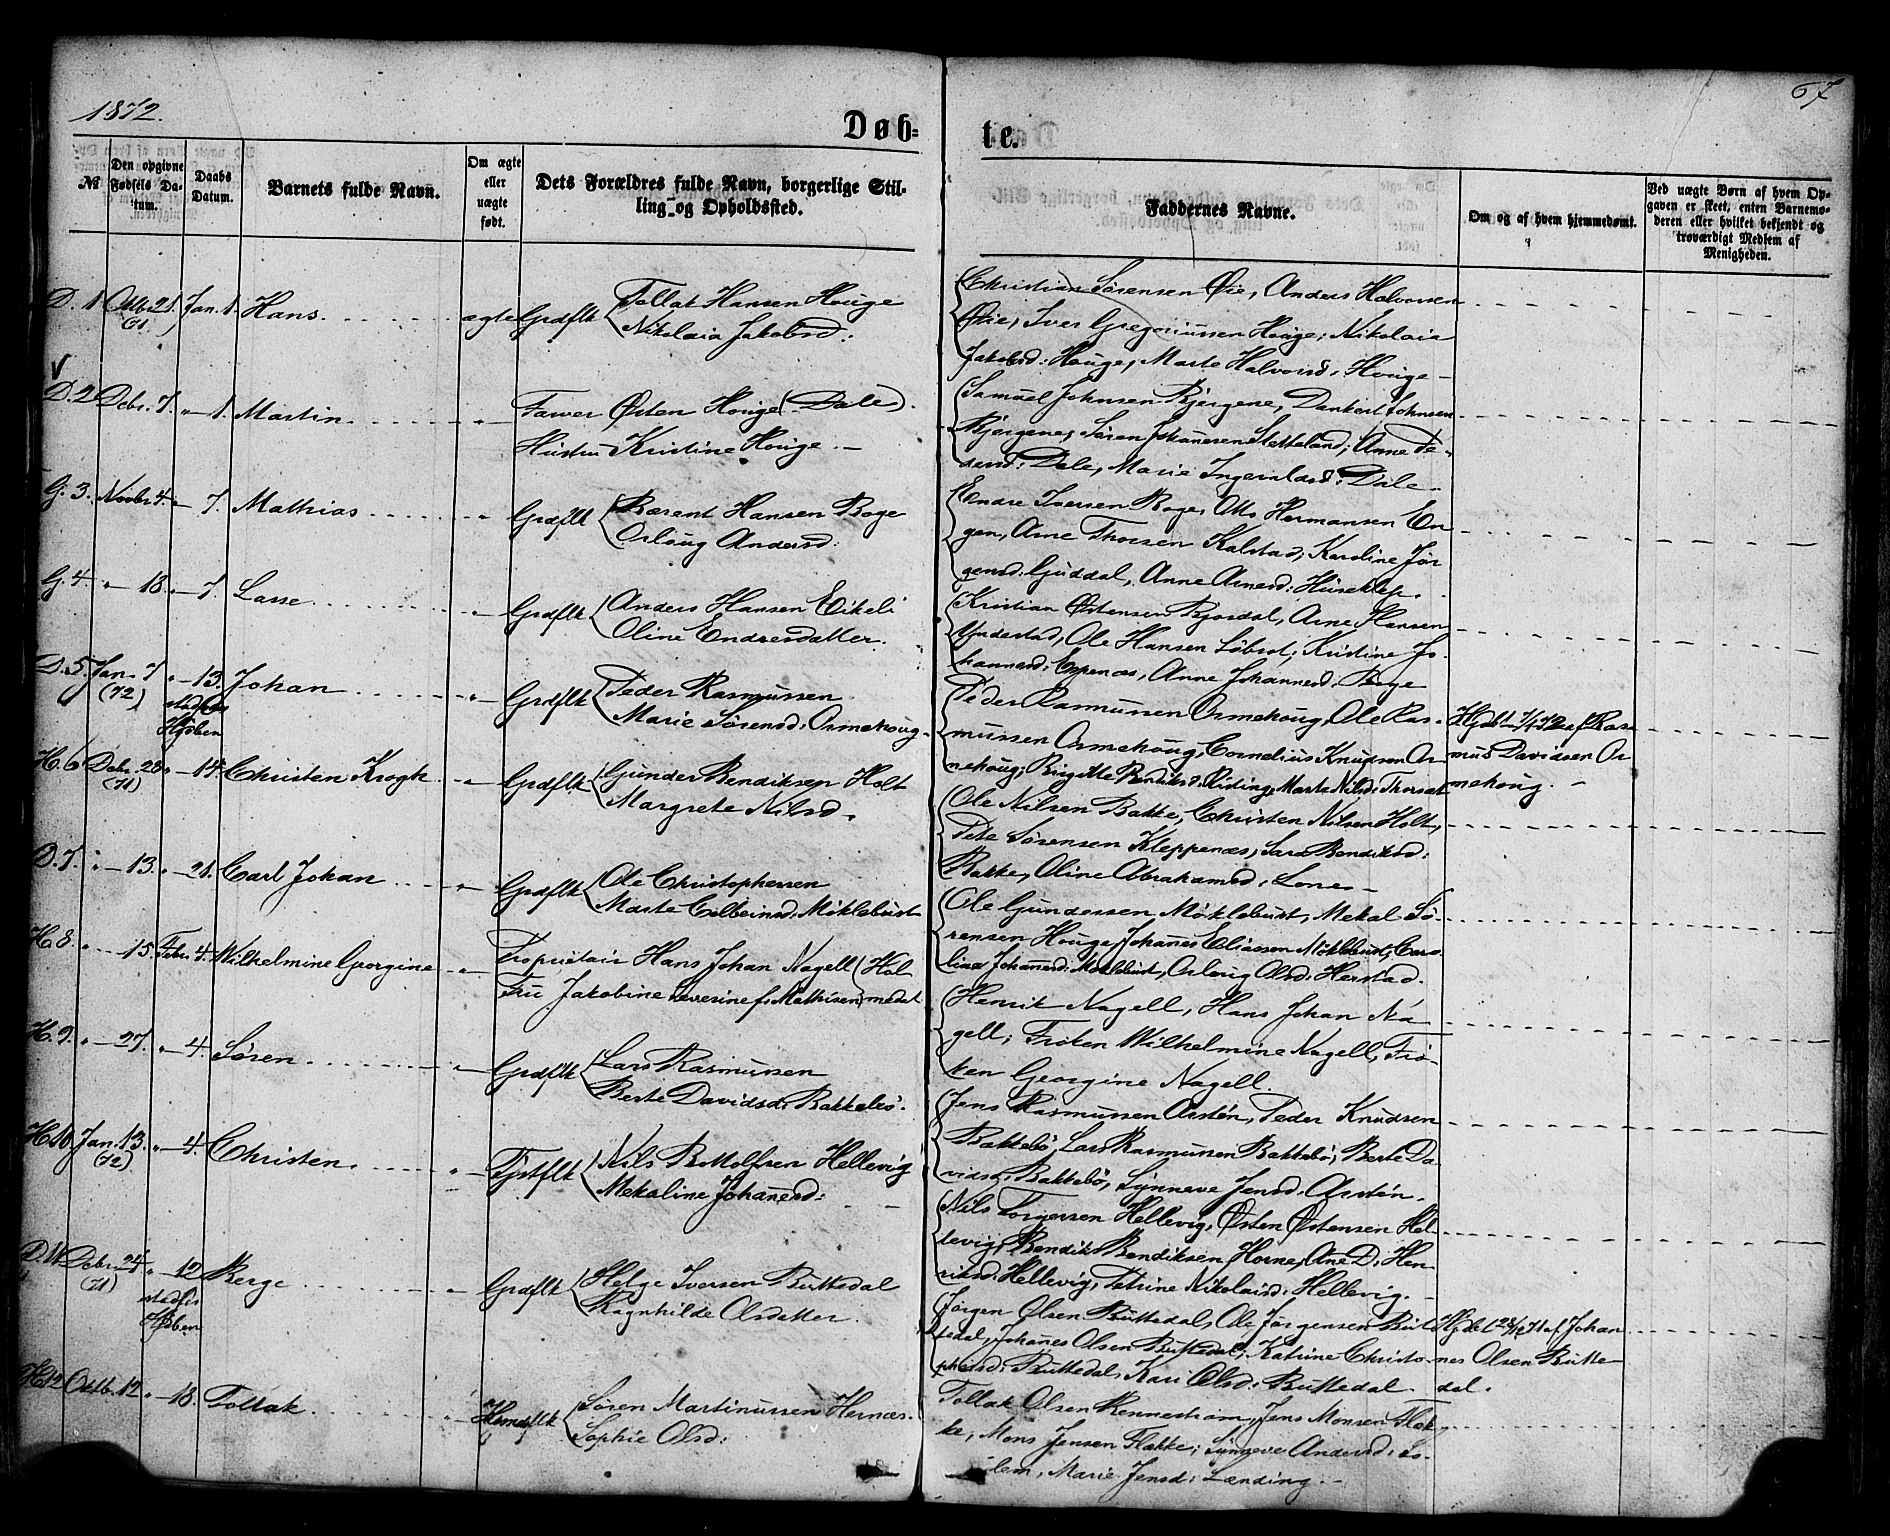 1872.
Døb=
te.
67
№
Den opgivne Fødsels Da-tum.
Daabs Datum.
Barnets fulde Navn.
Om ægte eller uægte født.
Dets Forældres fulde Navn, borgerlige Stil-
ling og Opholdssted.
Faddernes Navne.
Om og af hvem hjemmedøbt.
Ved uægte Børn af hvem Op-
gaven er skeet, enten Barnemo-
deren eller hvilket bekjendt og
troværdigt Medlem af
Menigheden.
D. 1 Octbr 21. Jan. 1. Hans. ægte Grdflk Tollak Hansen Houge
(71) Nikolaia Jakobsd:
Christian Sørensen Øie, Anders Halvorsen
Øie, Iver Gregoriussen Houge; Nikolaia
Jakobsd: Houge, Marte Halvorsd: Houge
D. 2 Debr. 7. " 1. Martin Farver Østen Houge (Dale).
Hustru Kristine Houge.
Samuel Johnsen Bjergene, Dankert Johnsen
Bjergene, Søren Johannesen Sletteland; Anne Pe-
dersd: Dale, Marie Ingevaldsd: Dale
G. 3. Novbr 4. " 7. Mathias Grdflk Bærent Hansen Boge
Oslaug Andersd:
Endre Iversen Boge, Otto Hermansen En
gen, Arne Thoresen Kalstad; Karoline Jør
gensd: Guddal, Anne Arnesd: Huseklep.
G. 4. " 18. " 7. Lasse Grdflk Anders Hansen Eikeli
Oline Endresdatter.
Kristian Østensen Bjordal, Arne Hansen
Yndestad, Ole Hansen Løbrot; Kristine Jo
hannesd: Espenæs, Anne Johannesd: Boge
D. 5. Jan. 7 " 13. Johan Grdflk Peder Rasmussen
(72) stadfes Hjdben Marie Sørensd: Ormehoug
Peder Rasmussen Ormehoug, Ole Ras-
mussen Ormehoug, Cornelius Knudsen Or
mehoug; Birgitte Bendiksd: Risting, Marte Nilsd: Thorsæt
Hjdbt 7/1 72 af Ras
mus Davidsen Or
mehoug.
H. 6 Debr. 28 " 14. Christen Krogh Grdflk Gunder Bendiksen Holt
(71) Margrete Nilsd.
Ole Nilsen Bakke, Christen Nilsen Holt,
Peter Sørensen Kleppenæs, Sara Bendiksd:
Bakke, Oline Abrahamsd: Lone
D. 7. " 13. " 21. Carl Johan Grdflk Ole Christophersen
Marte Colbeinsd: Møklebust
Ole Gundersen Møklebust, Mekal Sø-
rensen Houge, Johannes Eliassen Møklebust; Caro
lina Johannesd: Møklebust, Oslaug Olsd: Herstad.
H. 8. " 15. Febr 4. Wilhelmine Georgine Proprietair Hans Johan Nagell (Hol
Fru Jakobine Severine f. Mathisen medal
Henrik Nagell, Hans Johan Na
gell; Frøken Wilhelmine Nagell, Frø
ken Georgine Nagell.
H. 9. " 27. " 4. Søren Grdflk Lars Rasmussen
Berte Davidsd: Bakkebø.
Jens Rasmussen Aastøn, Peder Knudsen
Bakkebø, Lars Rasmussen Bakkebø; Berte Da
vidsd: Bakkebø, Synneve Jensd: Aastøn.
H. 10. Jan. 13. " 4. Christen Fjstflk Nils B. Molfsen Hellevig
(72) Mekaline Johannesd:
Nils Torgersen Hellevig, Østen Østensen Hel
levig, Bendik Bendiksen Horne, Ane D. Hen
riksd: Hellevig, Petrine Nikolaisd: Hellevig.
D. 11. Debr. 24 " 12 Berge Grdflk Helge Iversen Buttedal
(71) stadfes Hjdben Ragnhilde Olsdatter.
Jørgen Olsen Buttedal, Ole Jørgensen But
tedal, Johannes Olsen Buttedal; Katrine Christo
phersd: Buttedal, Kari Olsd: Buttedal
Hjdbt 28/12 71 af Johan
nes Olsen Butte
dal.
H. 12 Octb. 12 " 18. Tollak Søren Martinussen Hernæs.
Sophie Olsd:
Tollak Olsen Rennestrøm, Jens Monsen Flæk
ke, Mons Jensen Flekke; Synneve Andersd: So-
lem, Marie Jensd: Lænding.